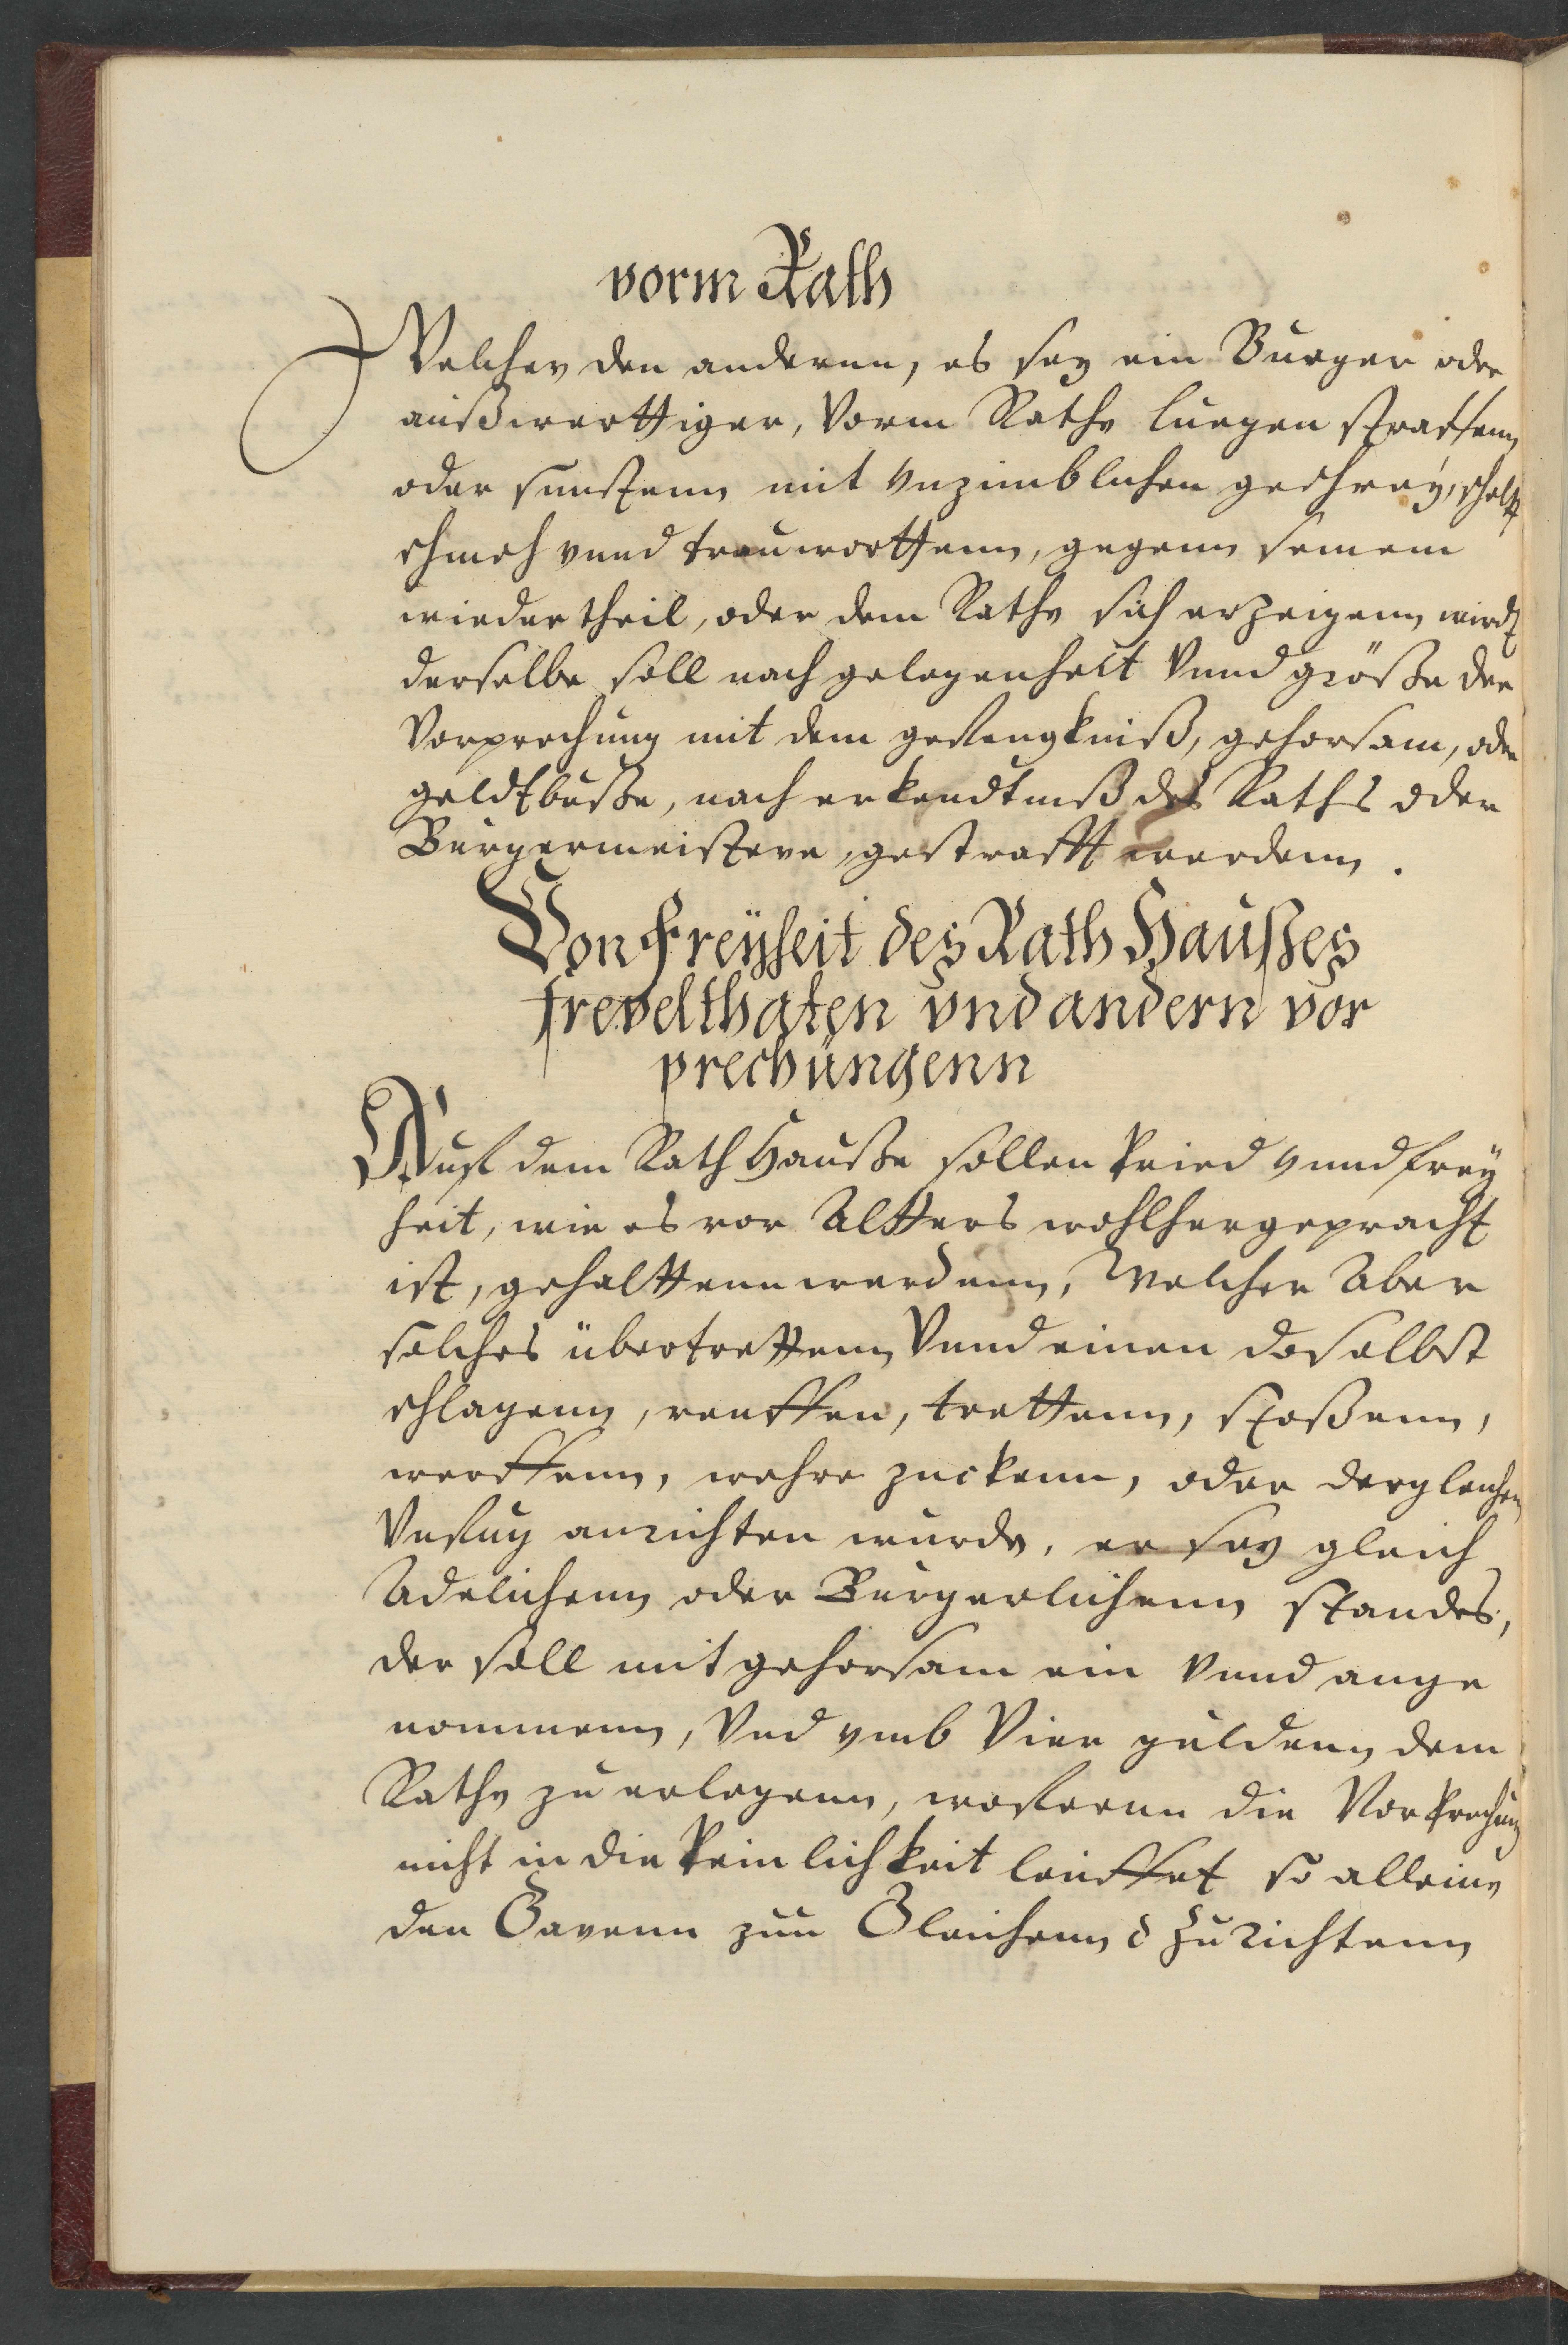 vorm Rath
Welcher den anderenn, es sey ein Burger oder
außwerttiger, Vorm Rathe luegen straffenn
oder sunstenn mit vnzimblichen geschrey, schelt
schmeh vnnd trauworttenn, gegenn seinem
wiedertheil, oder dem Rathe sich erzeigenn wirdt
derselbe soll nach gelegenheit Vnnd größe der
Vorprechung mit dem gefengkniß, gehorsam, oder
geldtbuße, nach erkendtniß des Raths oder
Burgermeistere, gestrafft werdenn.
Von Freyheit des Rath Haußes
freuelthaten vnd andern vor
prechungenn
Auf dem Rath Hauße sollen fried vnnd frey
heit, wie es vor Altters wohlhergepracht
ist, gehalttenn werdenn, Welcher Aber
solches übertrettenn Vnnd einen doselbst
schlagenn, rauffen, trettenn, stoßenn,
werffenn, wehre zuckenn, oder dergleichen
Vnfug anrichten wurde, er sey gleich
Adelichenn oder Burgerlichenn standes,
der soll mit gehorsam ein Vnnd ange
nommenn, Vnd vmb Vier guldenn dem
Rathe zu erlegenn, wofernn die Vorprechung
nicht in die peinlichkeit leufft so alleine
den Gravenn zun Gleichenn &c zu richtenn